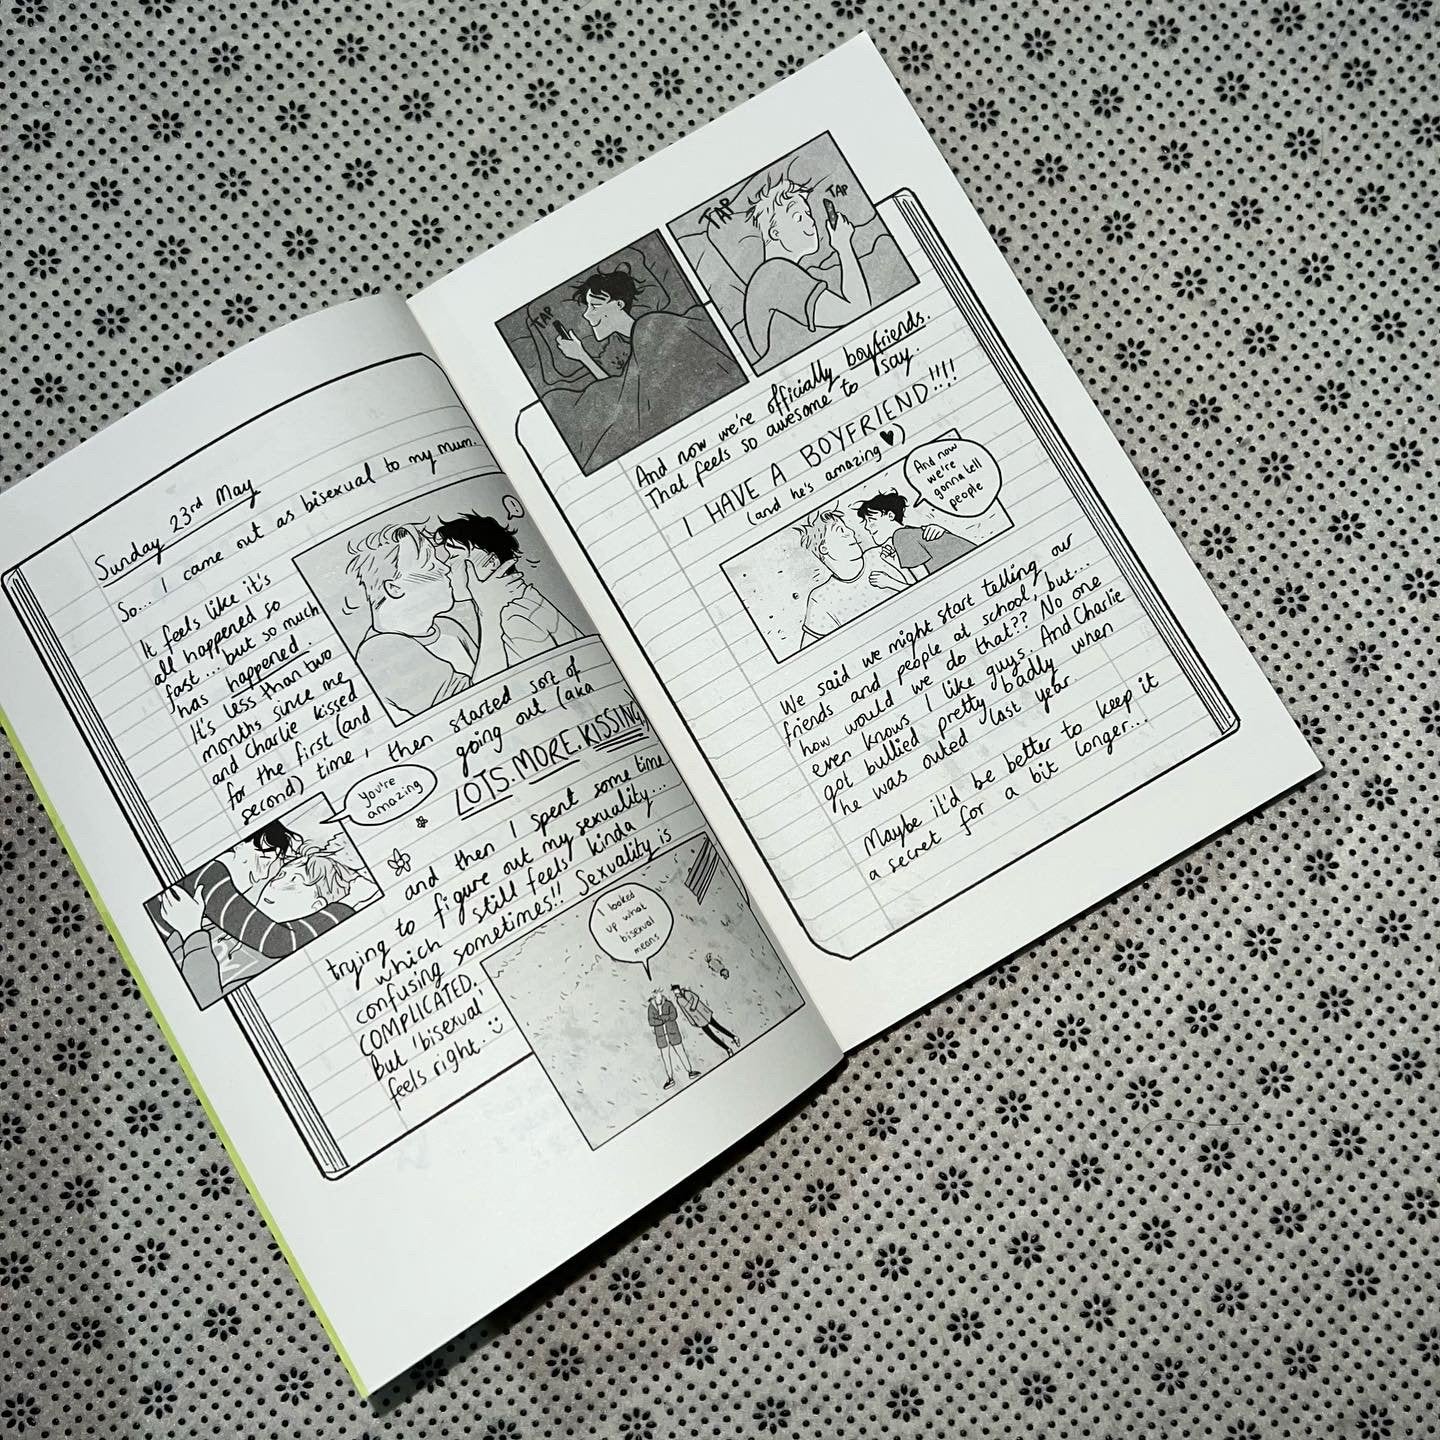 Sunday 23rd May
So... I came out as bisexual to my mum.
It feels like it's
all happened so
fast... but so much
has happened.
It's less than two
months since me
and Charlie kissed
for the first (and
second) time, then started sort of
going out (aka
LOTS. MORE. KISSING)
you're
amazing
and then I spent some time
trying to figure out my sexuality...
which still feels kinda
confusing sometimes!! Sexuality is
COMPLICATED.
But 'bisexual'
feels right. :)
I looked
up what
bisexual
means
TAP
TAP
TAP
And now we're officially boyfriends.
That feels so awesome to say.
I HAVE A BOYFRIEND!!!!
(and he's amazing ♥)
And now
we're
gonna tell
people
We said we might start telling our
friends and people at school, but...
how would we do that?? No one
even knows I like guys. And Charlie
got bullied pretty badly when
he was outed last year.
Maybe it'd be better to keep it
a secret for a bit longer...